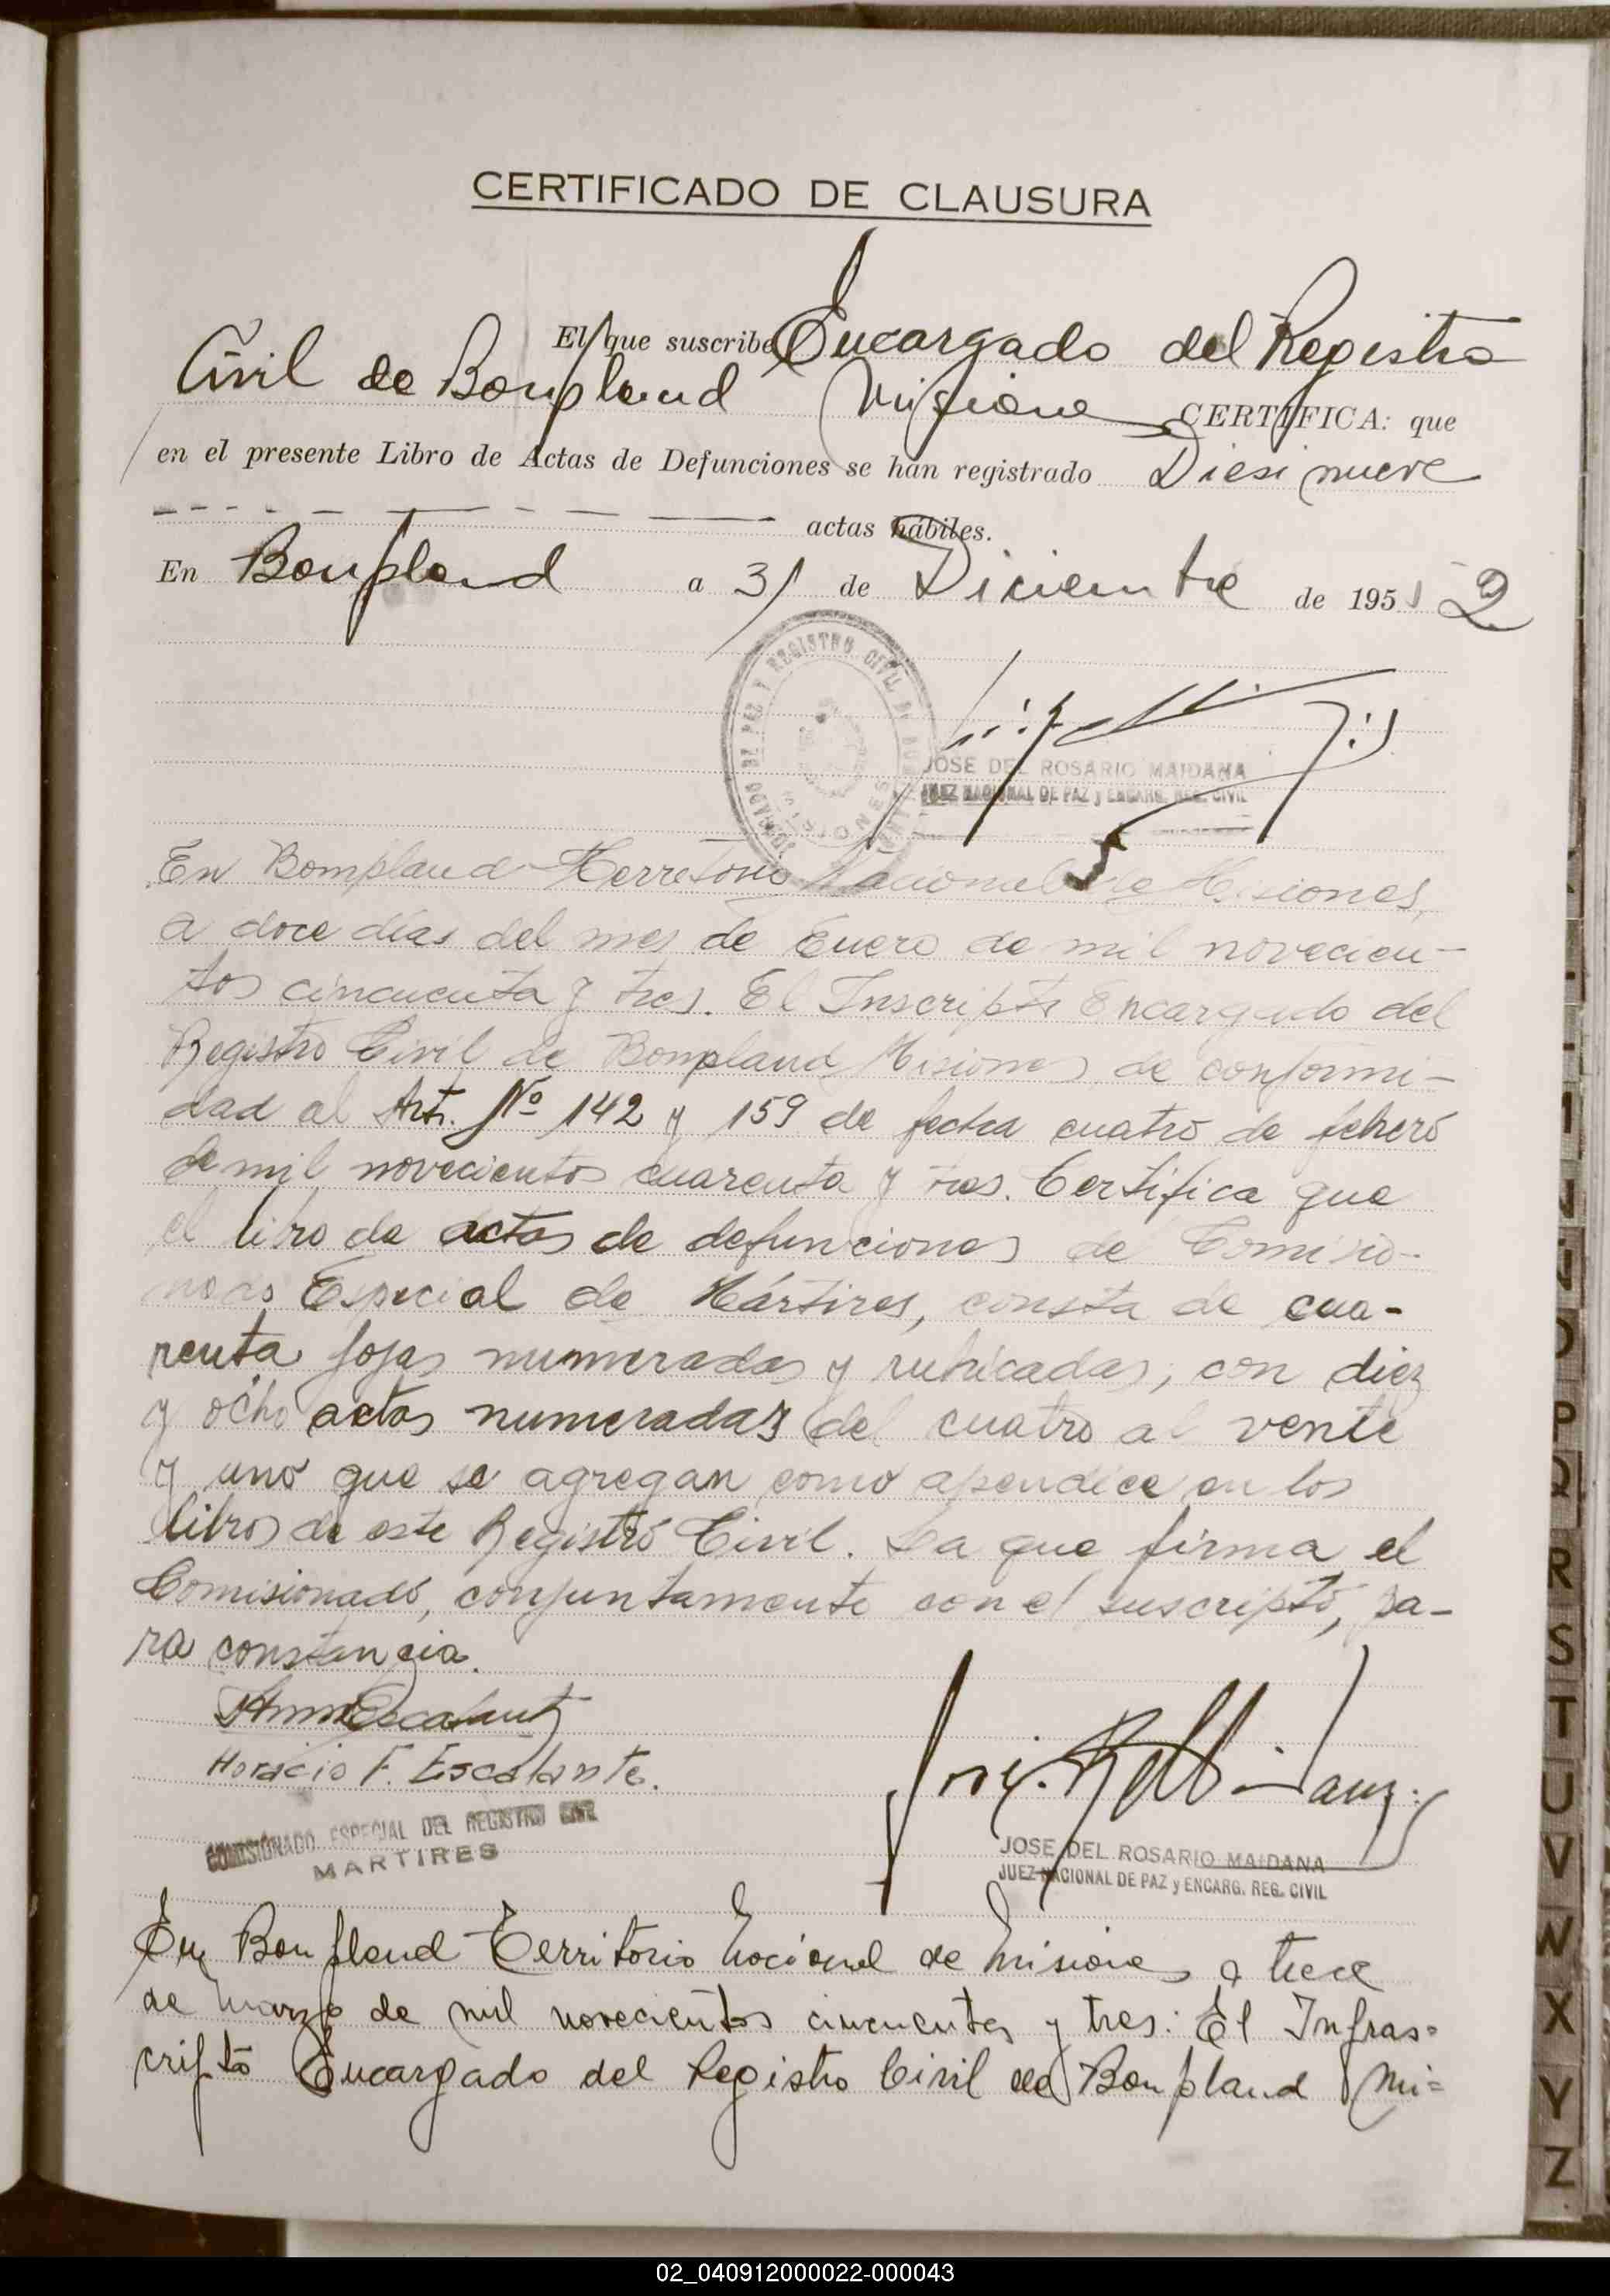 CERTIFICADO DE CLAUSURA
El que suscribe Encargado del Registro
Civil de Bonpland Misiones CERTIFICA: que
en el presente Libro de Actas de Defunciones se han registrado Diesinueve
actas hábiles.
En Bonpland a 31 de Diciembre de 195 2
JUZGADO DE PAZ Y REGISTRO CIVIL DE
MISIONES
JOSE DEL ROSARIO MAIDANA
JUEZ NACIONAL DE PAZ y ENCARG. REG. CIVIL
En Bompland Territorio Nacional de Misiones,
a doce días del mes de Enero de mil novecien-
tos cincuenta y tres. El Inscripto Encargado del
Registro Civil de Bompland Misiones de conformi-
dad al Art. Nº 142 y 159 de fecha cuatro de febrero
de mil novecientos cuarenta y tres. Certifica que
el libro de actas de defunciones de Comisio-
nado Especial de Mártires, consta de cua-
renta fojas numeradas y rubricadas, con diez
y ocho actas numeradas del cuatro al vente
y uno que se agregan como apendice en los
libros de este Registro Civil. La que firma el
Comisionado, conjuntamente con el suscripto, pa-
ra constancia.
Horacio F. Escalante.
COMISIONADO ESPECIAL DEL REGISTRO CIVIL
MARTIRES
JOSE DEL ROSARIO MAIDANA
JUEZ NACIONAL DE PAZ y ENCARG. REG. CIVIL
En Bonpland Territorio Nacional de Misiones a trece
de Marzo de mil novecientos cincuenta y tres: El Infras=
cripto Encargado del Registro Civil de Bonpland Mi=
1
J
N
O
P
Q
R
S
T
U
V
W
X
Y
Z
02_040912000022-000043